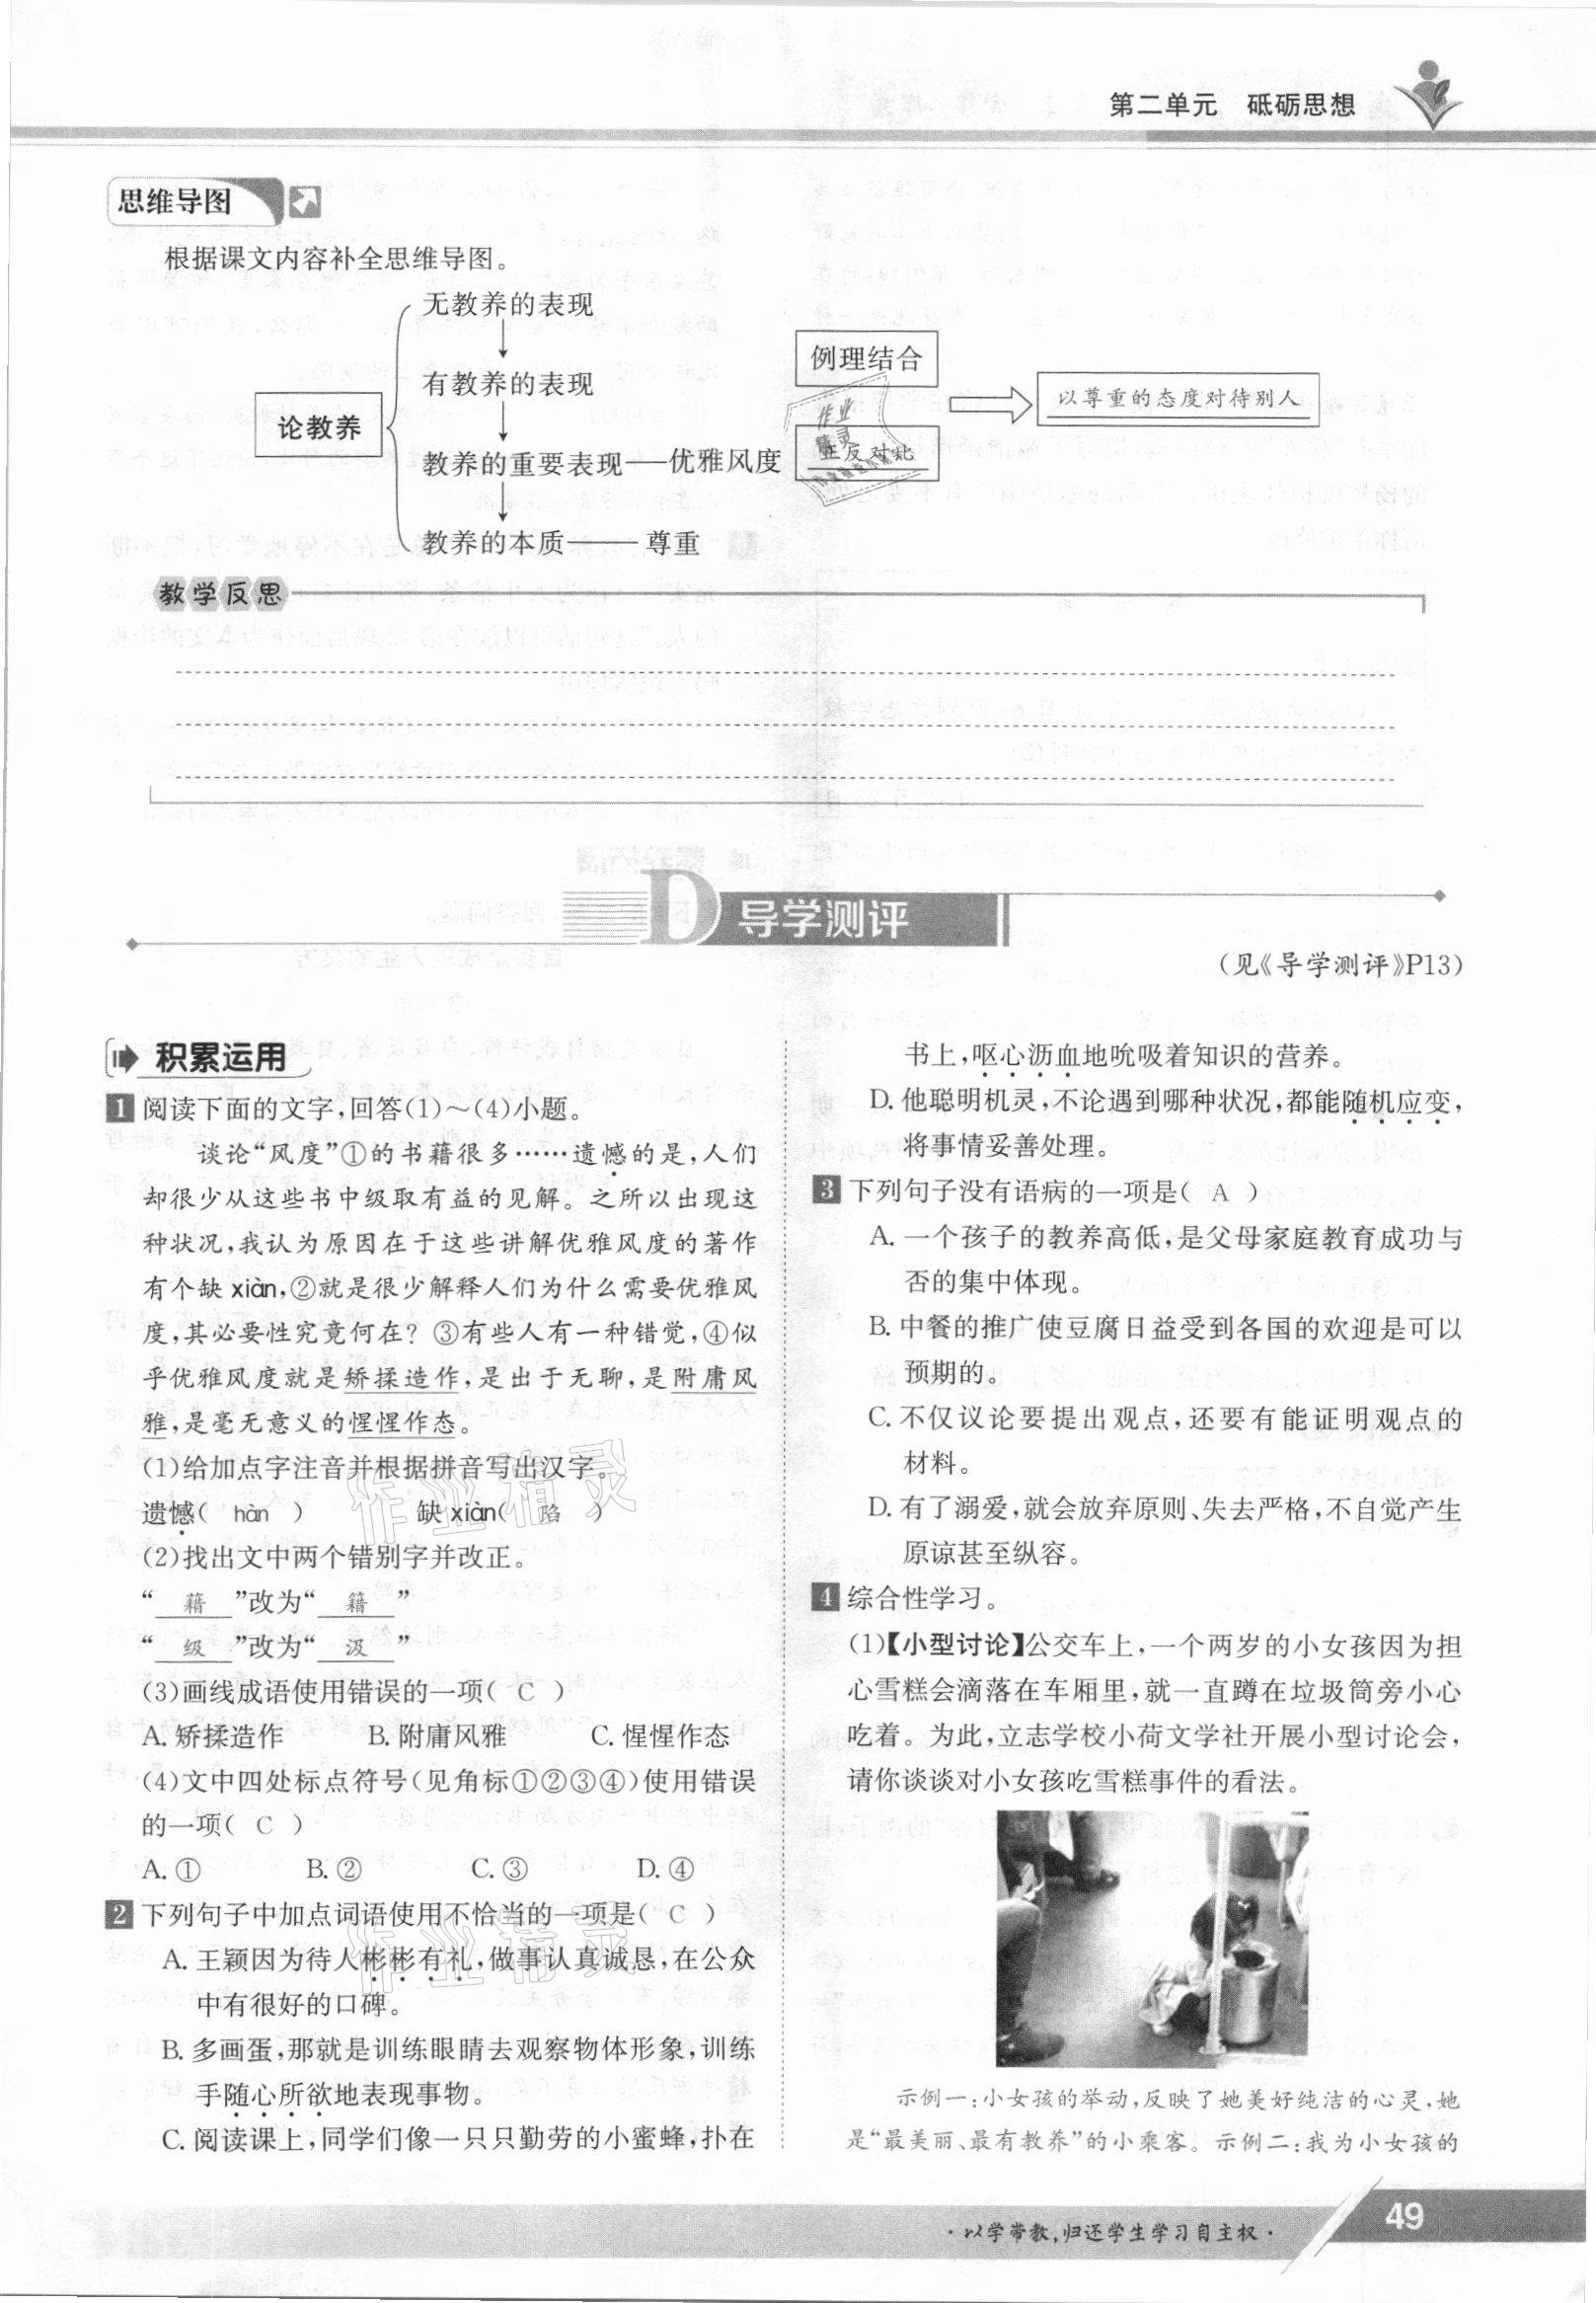 第二单元 砥砺思想
思维导图
根据课文内容补全思维导图。
无教养的表现
有教养的表现
论教养
教养的重要表现——优雅风度
教养的本质——尊重
例理结合
正反对比
以尊重的态度对待别人
教学反思
D 导学测评
(见《导学测评》P13)
积累运用
1 阅读下面的文字,回答(1)~(4)小题。
谈论“风度”①的书藉很多……遗憾的是,人们
却很少从这些书中级取有益的见解。之所以出现这
种状况,我认为原因在于这些讲解优雅风度的著作
有个缺 xiàn,②就是很少解释人们为什么需要优雅风
度,其必要性究竟何在? ③有些人有一种错觉,④似
乎优雅风度就是矫揉造作,是出于无聊,是附庸风
雅,是毫无意义的惺惺作态。
(1)给加点字注音并根据拼音写出汉字。
遗憾( hàn ) 缺 xiàn( 陷 )
(2)找出文中两个错别字并改正。
“ 藉 ”改为“ 籍 ”
“ 级 ”改为“ 汲 ”
(3)画线成语使用错误的一项( C )
A. 矫揉造作 B. 附庸风雅 C. 惺惺作态
(4)文中四处标点符号(见角标①②③④)使用错误
的一项( C )
A. ① B. ② C. ③ D. ④
2 下列句子中加点词语使用不恰当的一项是( C )
A. 王颖因为待人彬彬有礼,做事认真诚恳,在公众
中有很好的口碑。
B. 多画蛋,那就是训练眼睛去观察物体形象,训练
手随心所欲地表现事物。
C. 阅读课上,同学们像一只只勤劳的小蜜蜂,扑在
书上,呕心沥血地吮吸着知识的营养。
D. 他聪明机灵,不论遇到哪种状况,都能随机应变,
将事情妥善处理。
3 下列句子没有语病的一项是( A )
A. 一个孩子的教养高低,是父母家庭教育成功与
否的集中体现。
B. 中餐的推广使豆腐日益受到各国的欢迎是可以
预期的。
C. 不仅议论要提出观点,还要有能证明观点的
材料。
D. 有了溺爱,就会放弃原则、失去严格,不自觉产生
原谅甚至纵容。
4 综合性学习。
(1)【小型讨论】公交车上,一个两岁的小女孩因为担
心雪糕会滴落在车厢里,就一直蹲在垃圾筒旁小心
吃着。为此,立志学校小荷文学社开展小型讨论会,
请你谈谈对小女孩吃雪糕事件的看法。
示例一:小女孩的举动,反映了她美好纯洁的心灵,她
是“最美丽、最有教养”的小乘客。示例二:我为小女孩的
·以学带教,归还学生学习自主权·
49
作业精灵
作业精灵
作业精灵